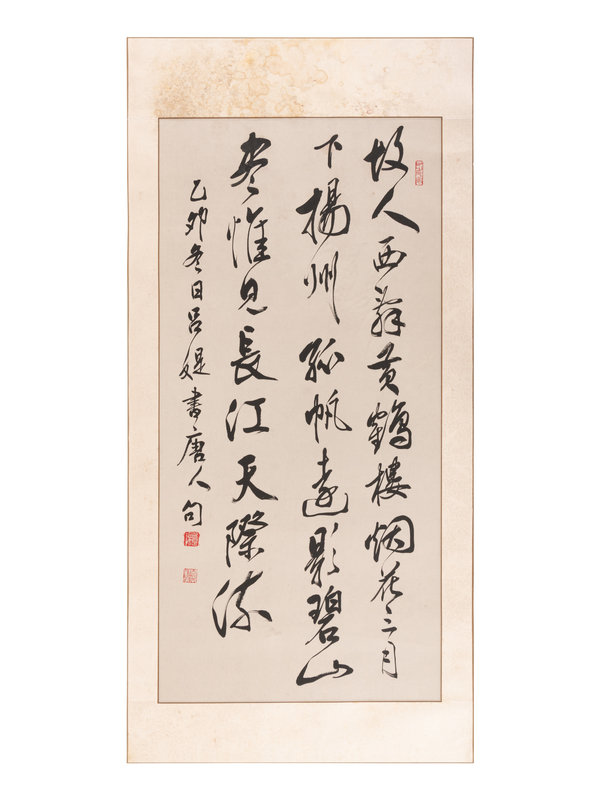 故人西辭黄鶴樓烟花三月
下揚州孤帆遠影碧山
尽惟見長江天際流
乙卯冬日吕媞書唐人句